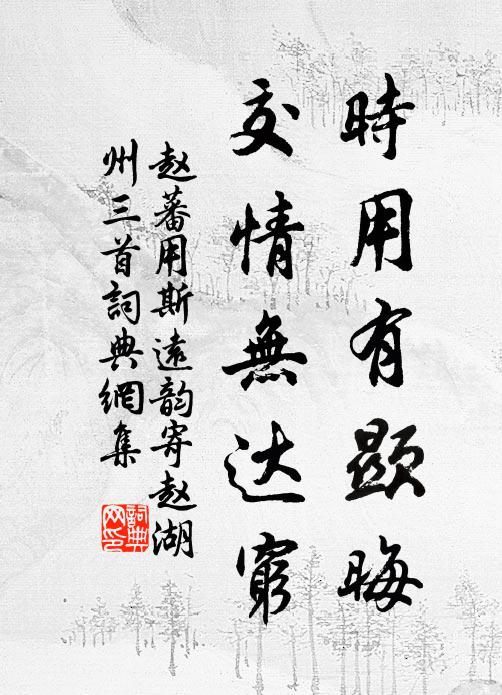 時用有顯晦
交情無达窮
赵蕃用斯遠韵寄赵湖
州三首詞典網集
詞典网印